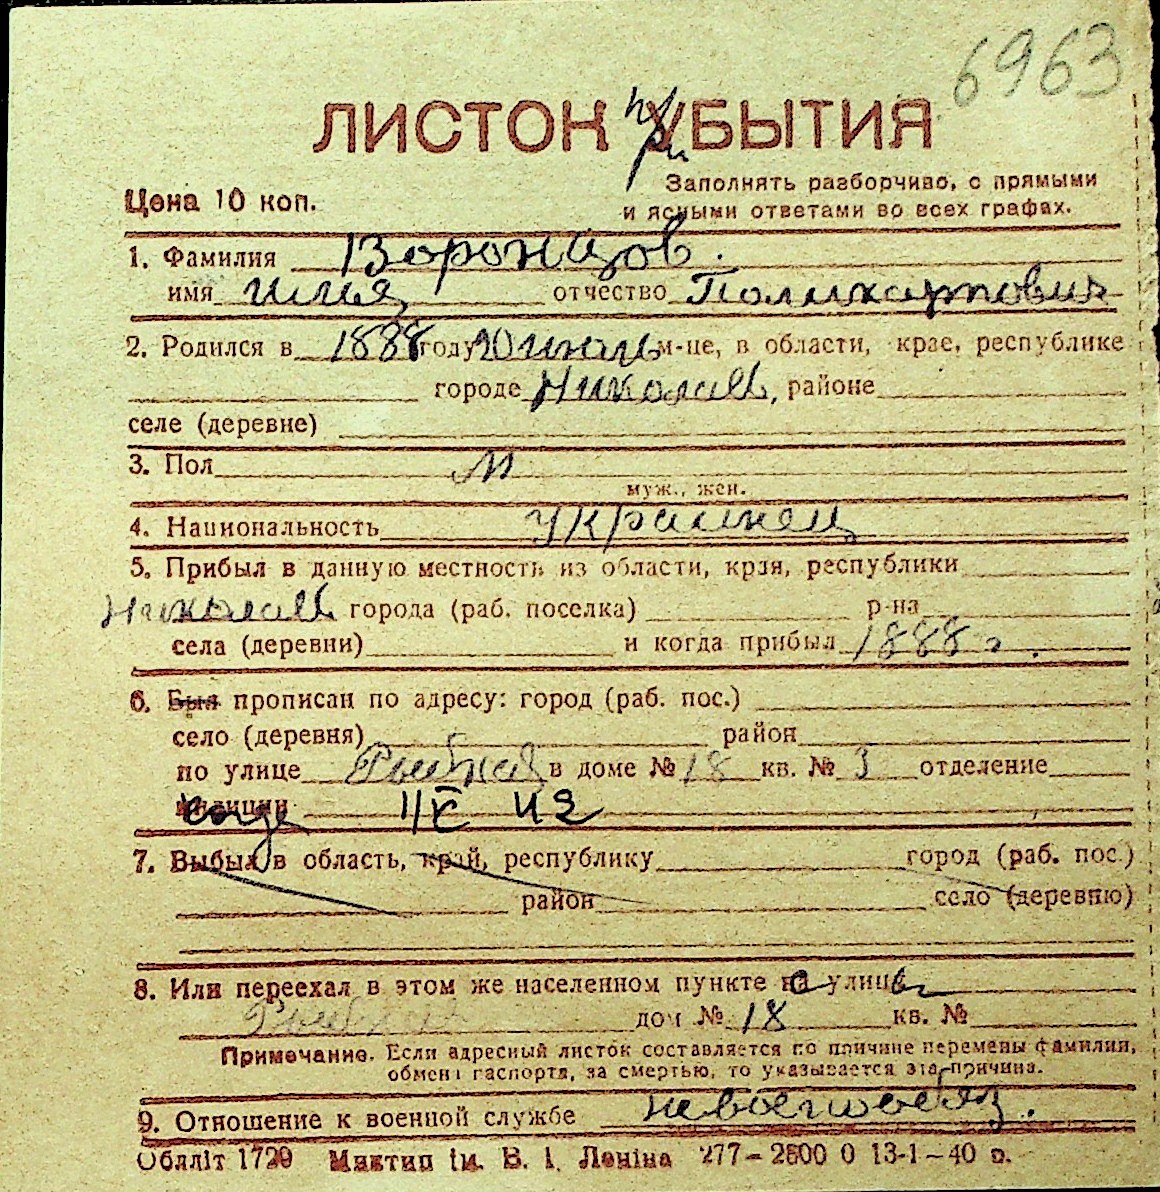 6963
ЛИСТОК прибытия
Цена 10 коп.
Заполнять разборчиво, с прямыми
и ясными ответами во всех графах.
1. Фамилия Воронцов.
имя Илья отчество Поликарпович
2. Родился в 1888 году 20 июль м-це, в области, крае, республике
городе Николаев, районе
селе (деревне)
3. Пол М
муж., жен.
4. Национальность Украинец
5. Прибыл в данную местность из области, края, республики
Николаев города (раб. поселка) р-на
села (деревни) и когда прибыл 1888 г.
6. Был прописан по адресу: город (раб. пос.)
село (деревня) район
по улице Рыбная в доме № 18 кв. № 3 отделение
милиции
7. Выбыл в область, край, республику город (раб. пос.)
район село (деревню)
8. Или переехал в этом же населенном пункте с улицы
Рыбная дом № 18 кв. №
Примечание. Если адресный листок составляется по причине перемены фамилии,
обмена паспорта, за смертью, то указывается эта причина.
9. Отношение к военной службе невоеннообяз.
Обліт 1729 Миктип ім. В. І. Леніна 277—2800 0 13-1—40 р.